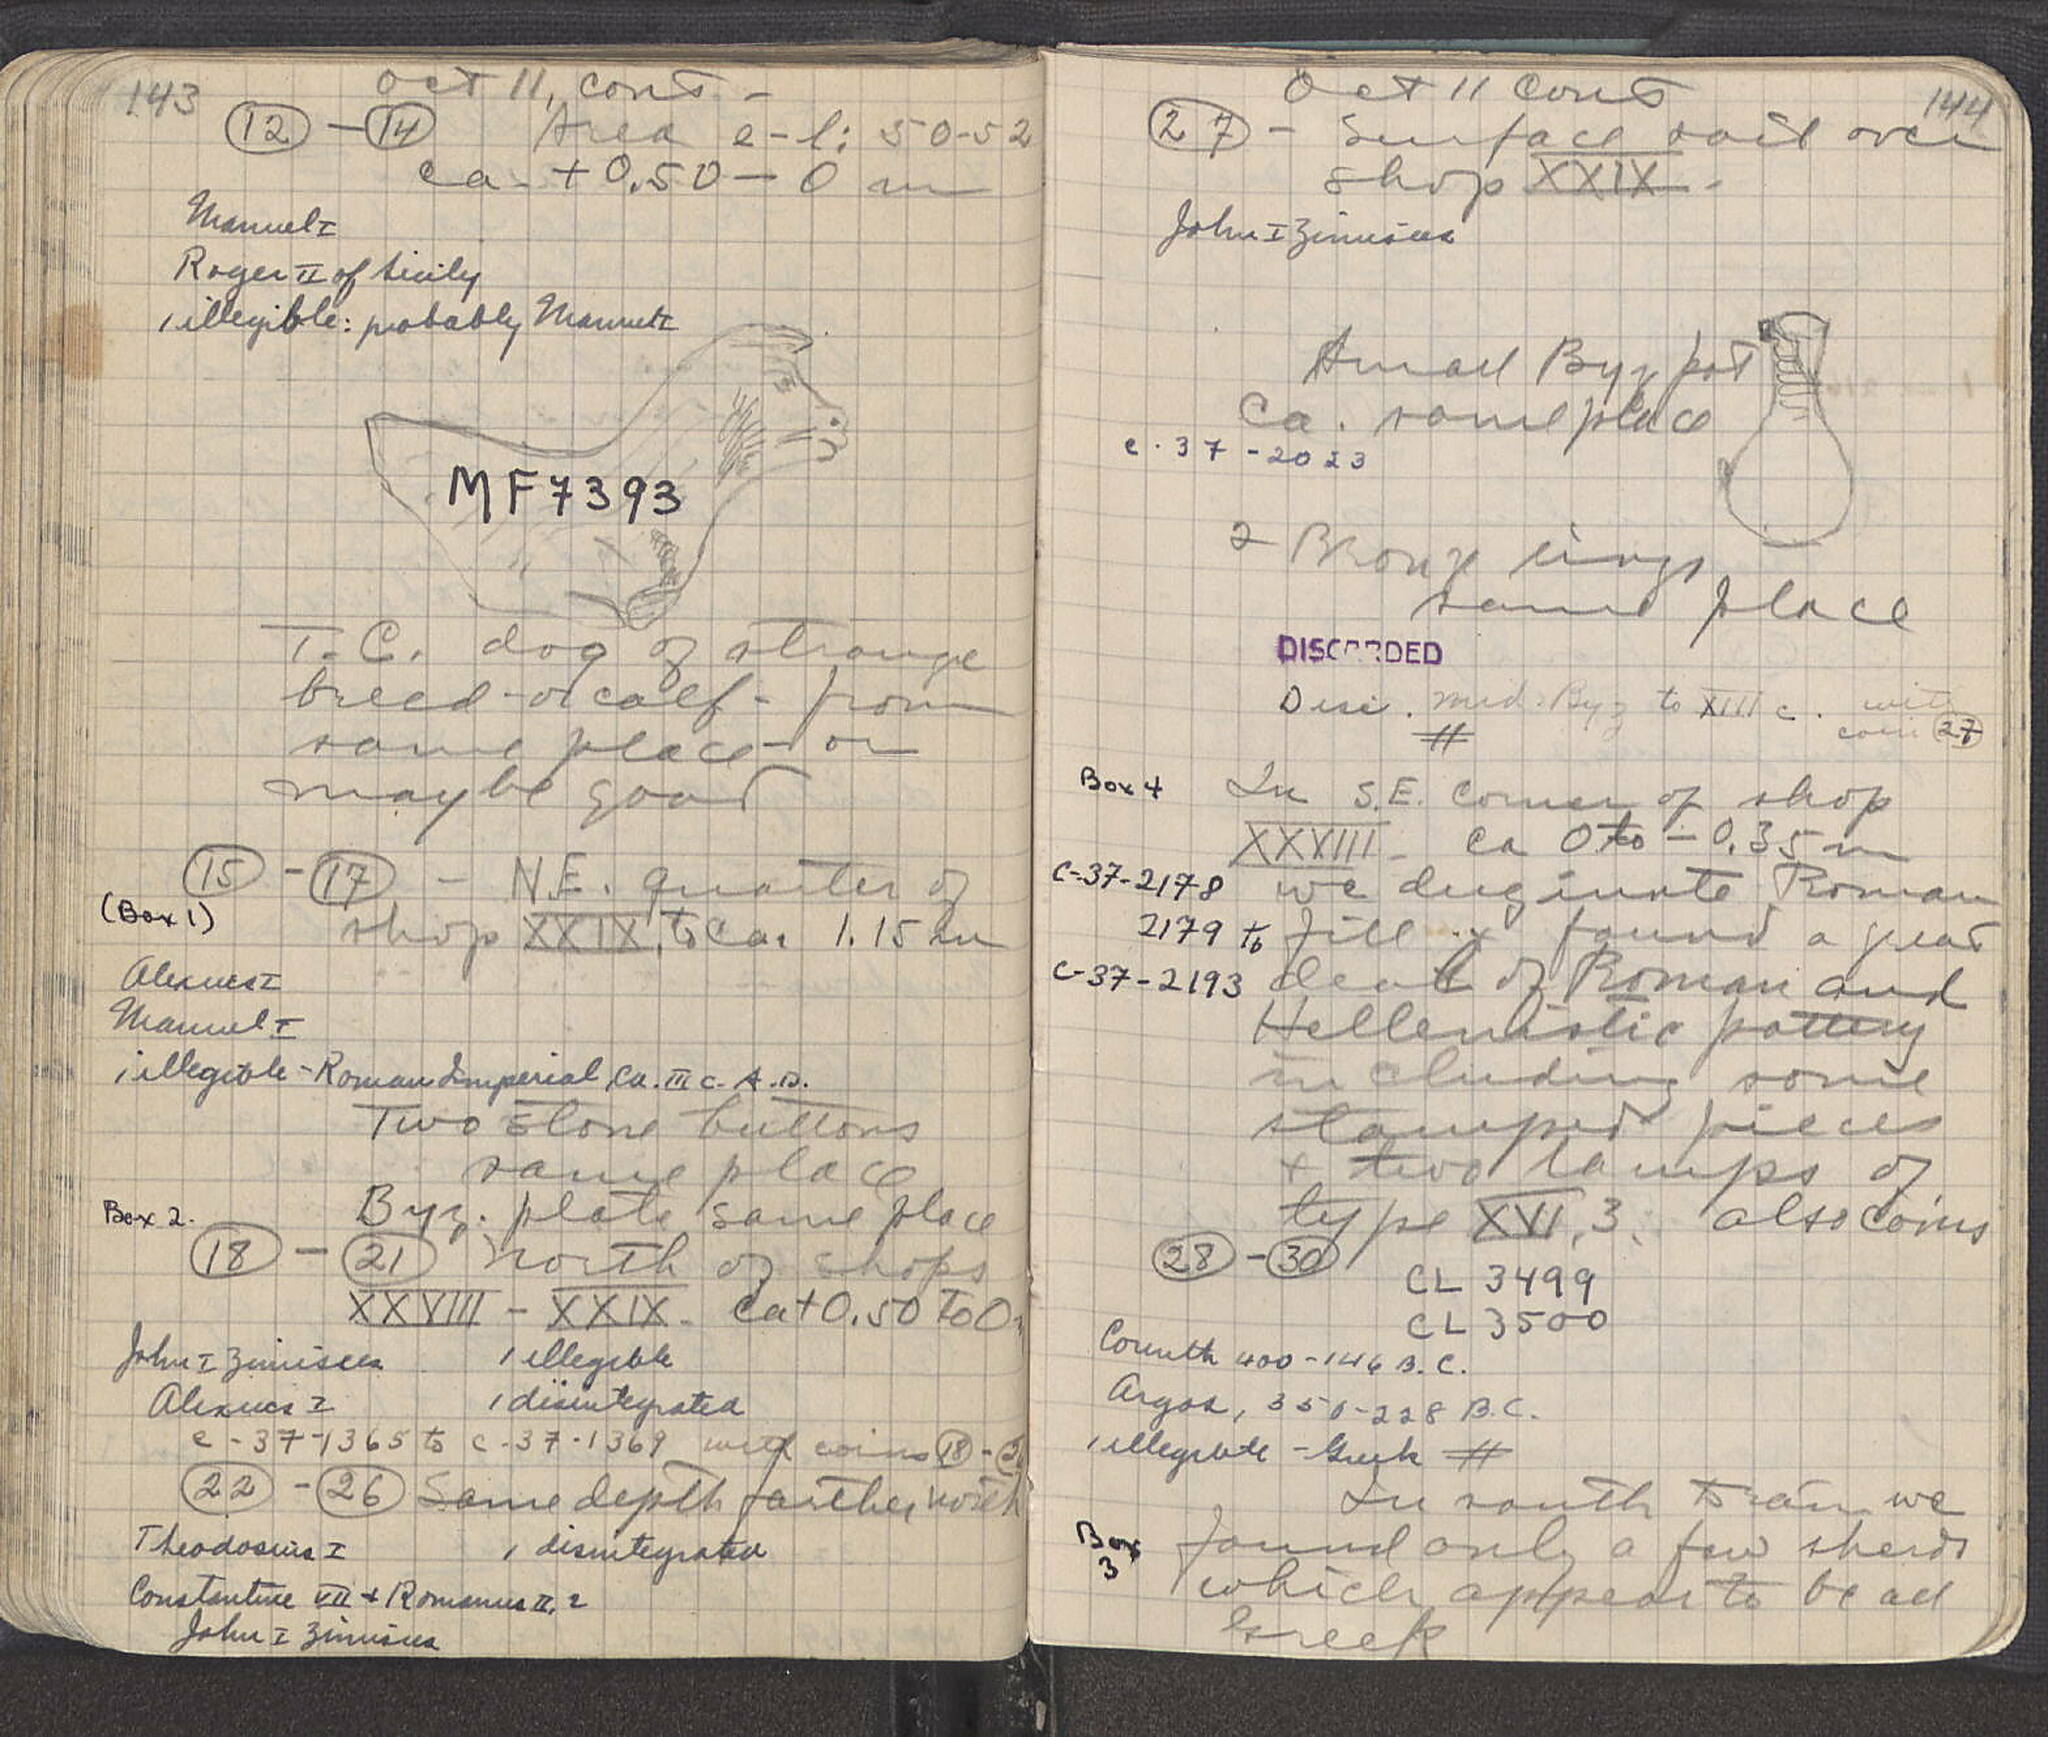 143
Oct 11, cont -
12 - 14 Area e-l: 50-52
ca. + 0.50 - 0 m
Manuel I
Roger II of Sicily
1 illegible: probably Manuel I
MF 7393
T.C. dog of strange
breed - or calf - from
same place - or
maybe goat
15 - 17 - N.E. quarter of
(Box 1)
shop XXIX, to ca. 1.15 m
Alexius I
Manuel I
1 illegible - Roman Imperial, ca. III c. A.D.
Two stone buttons
same place
Box 2.
Byz. plate same place
18 - 21 North of shops
XXVIII - XXIX. ca + 0.50 to 0 m
John I Zimisces 1 illegible
Alexius I 1 disintegrated
c-37-1365 to c-37-1369 with coins 18 - 21
22 - 26 Same depth farther north
Theodosius I 1 disintegrated
Constantine VII + Romanus II, 2
John I Zimisces
144
Oct 11 cont
27 - Surface soil over
shop XXIX -
John I Zimisces
Small Byz pot
ca. same place
c. 37 - 2023
2 Bronze rings
same place
DISCARDED
Disc. mid. Byz to XIII c. with
coin 27
#
Box 4
In S.E. corner of shop
XXVIII - ca 0 to - 0.35 m
C-37-2178 we dug into Roman
2179 to fill & found a great
C-37-2193 deal of Roman and
Hellenistic pottery
including some
stamped pieces
+ two lamps of
type XVI, 3. also coins
28 - 30
CL 3499
CL 3500
Corinth 400-146 B.C.
Argos, 350-228 B.C.
1 illegible - Greek #
In south room we
Box 3
found only a few sherds
which appear to be all
Greek